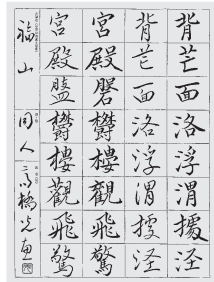 背芒面洛浮渭據涇
背芒面洛浮渭據涇
宮殿磐鬱樓觀飛驚
宮殿盤鬱樓觀飛驚
山 同人